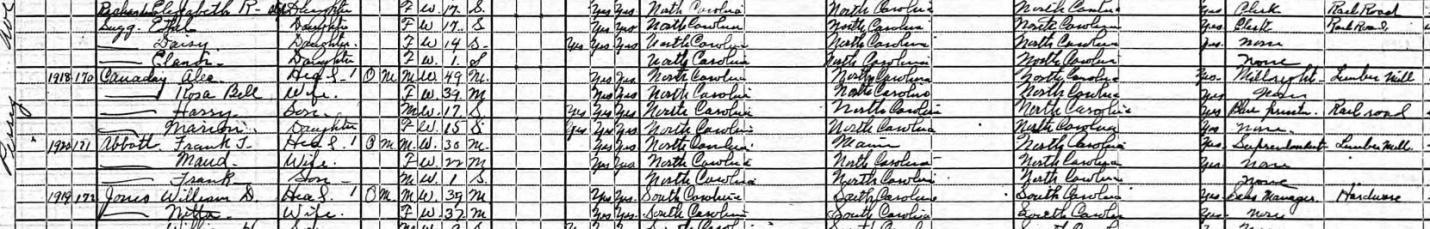 Elizabeth R. Daughter F W 17 S Yes Yes North Carolina North Carolina North Carolina Yes Clerk Rail Road
Sugg Daughter F W 17 S Yes Yes North Carolina North Carolina North Carolina Yes Clerk Rail Road
Daisy Daughter F W 14 S Yes Yes Yes North Carolina North Carolina North Carolina Yes none
Daughter F W 1 S North Carolina North Carolina North Carolina none
1918 170 Canaday Alec Hed S 1 O M M W 49 M Yes Yes North Carolina North Carolina North Carolina Yes Millright Lumber Mill
Rosa Bell Wife F W 39 M Yes Yes North Carolina North Carolina North Carolina Yes None
Harry Son M W 17 S Yes Yes Yes North Carolina North Carolina North Carolina Yes Blue Rail road
Marion Daughter F W 15 S Yes Yes Yes North Carolina North Carolina North Carolina Yes none
1920 171 Abbott Frank T. Hed S 1 O M M W 30 M Yes Yes North Carolina Maine North Carolina Yes Lumber Mill
Maud Wife F W 22 M Yes Yes North Carolina North Carolina North Carolina Yes none
Frank Son M W 1 S North Carolina North Carolina North Carolina None
1919 172 Jones William D. Hed S 1 O M M W 39 M Yes Yes South Carolina South Carolina South Carolina Yes Sales Manager Hardware
Wife F W 37 M Yes Yes South Carolina South Carolina South Carolina Yes None